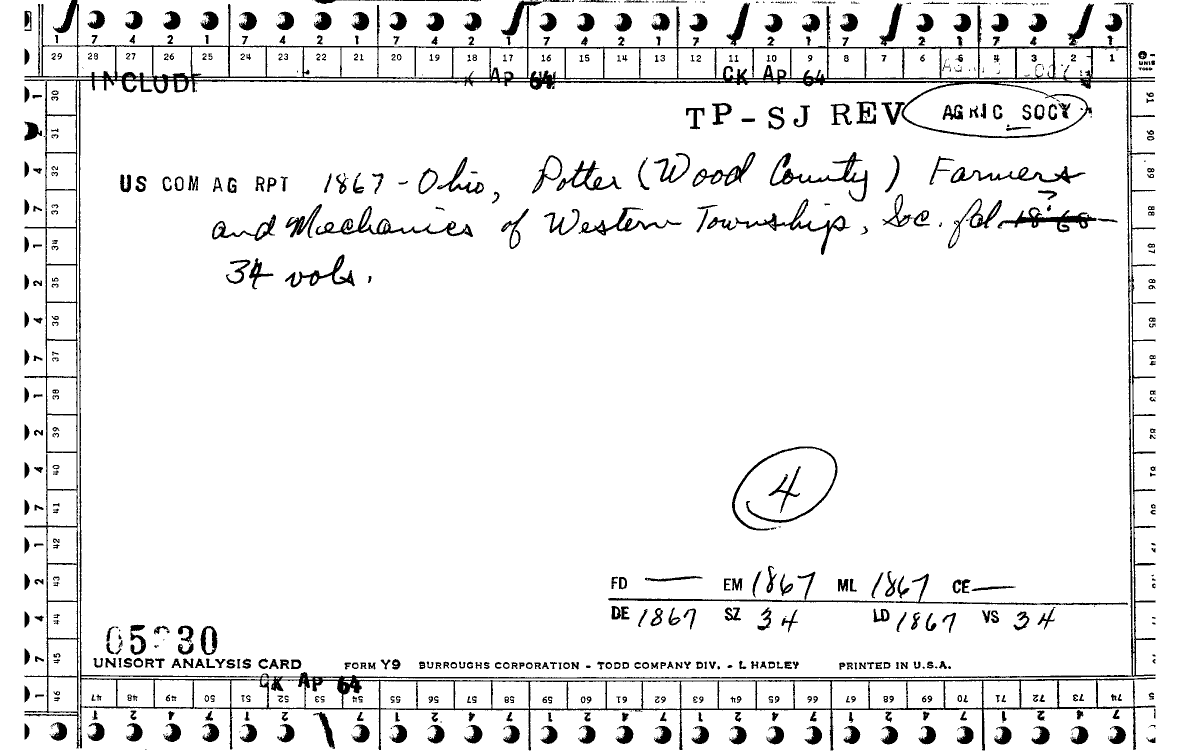 1 7 4 2 1 7 4 2 1 7 4 2 1 7 4 2 1 7 4 2 1 7 4 2 1 7 4 2 1
29 28 27 26 25 24 23 22 21 20 19 18 17 16 15 14 13 12 11 10 9 8 7 6 5 4 3 2 1
INCLUDE K AP 64 CK AP 64
TP-SJ REV AGRIC SOCY
US COM AG RPT 1867 - Ohio, Potter (Wood County) Farmers
and Mechanics of Western Township, Soc. fd. 1868 ?
34 vols.
4
FD — EM 1867 ML 1867 CE —
DE 1867 SZ 34 LD 1867 VS 34
UNISORT ANALYSIS CARD FORM Y9 BURROUGHS CORPORATION - TODD COMPANY DIV. - L HADLEY PRINTED IN U.S.A.
CK AP 64
46 47 48 49 50 51 52 53 54 55 56 57 58 59 60 61 62 63 64 65 66 67 68 69 70 71 72 73 74